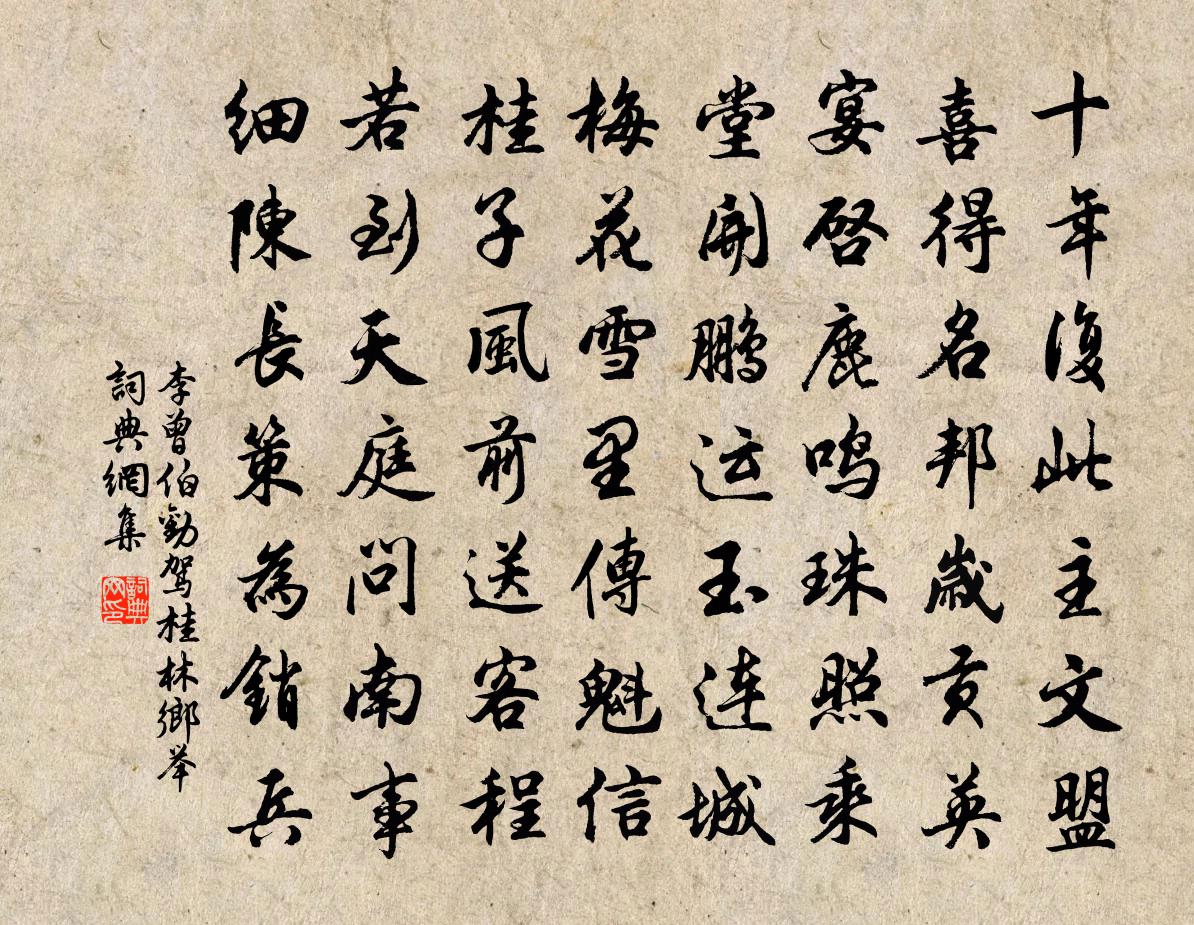 十年復此主文盟
喜得名邦歲貢英
宴啓鹿鳴珠照乘
堂開鵬运玉连城
梅花雪里傳魁信
桂子風前送客程
若到天庭問南事
細陳長策為銷兵
李曾伯勸駕桂林鄉举
詞典網集
詞典
网印